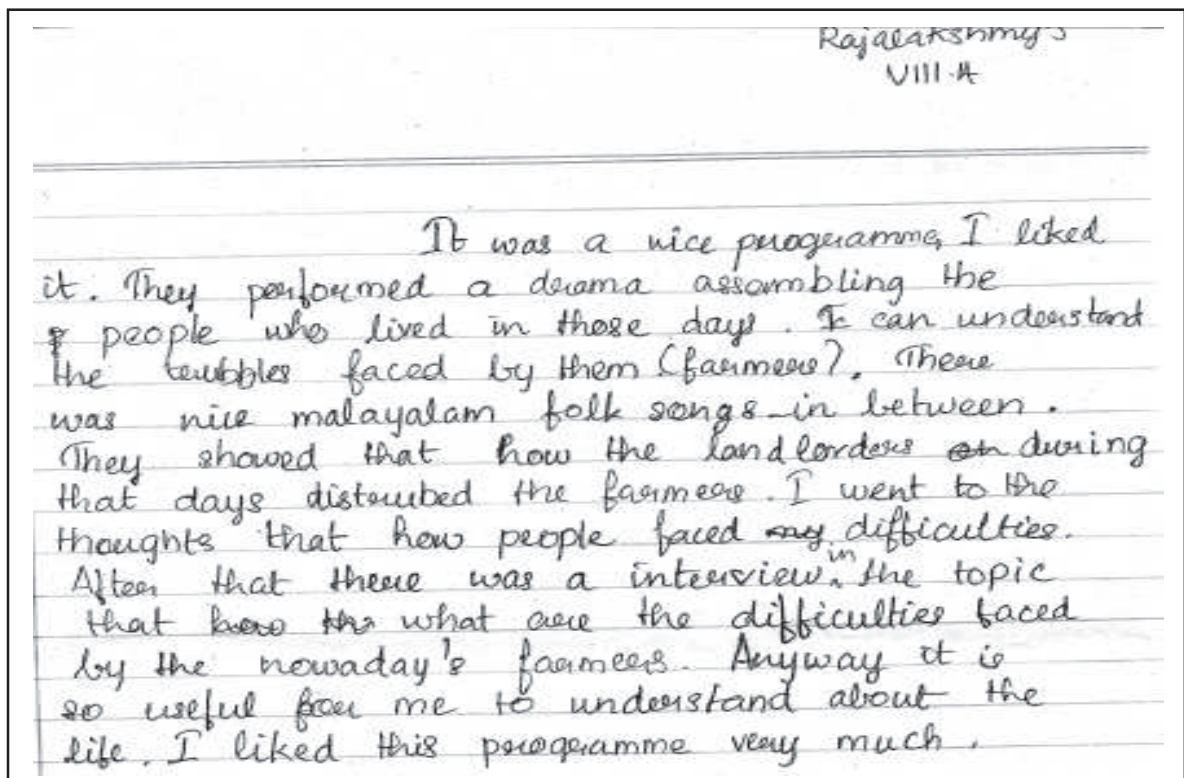 Rajalakshmy S
VIII A
It was a nice programme, I liked
it. They performed a drama assembling the
people who lived in those days. I can understand
the trubbles faced by them (farmers). There
was nice malayalam folk songs in between.
They showed that how the landlorders during
that days disturbed the farmers. I went to the
thoughts that how people faced difficulties.
After that there was a interview in the topic
that what are the difficulties faced
by the nowaday's farmers. Anyway it is
so useful for me to understand about the
life. I liked this programme very much.